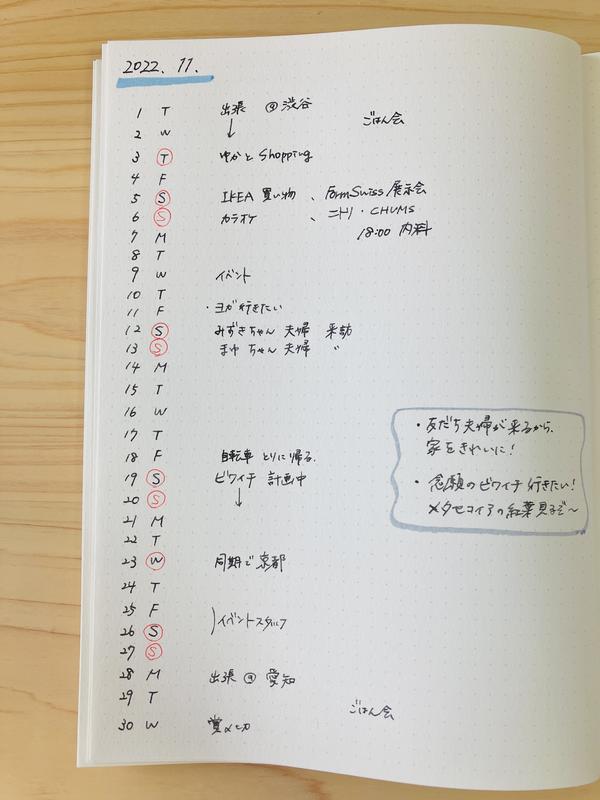 2022. 11.
1 T 出張 @渋谷 ごはん会
2 W ↓
3 T ゆかと Shopping
4 F
5 S IKEA 買い物 、 FormSwiss 展示会
6 S カラオケ 、 ニトリ・CHUMS
7 M 18:00 内科
8 T
9 W イベント
10 T
11 F ・ヨガ行きたい
12 S みずきちゃん 夫婦 来訪
13 S まゆちゃん 夫婦 〃
14 M
15 T
16 W
17 T
18 F 自転車 とりに帰る.
19 S ビワイチ 計画中
20 S ↓
21 M
22 T
23 W 同期で京都
24 T
25 F
26 S )イベントスタッフ
27 S
28 M 出張 @ 愛知
29 T ごはん会
30 W 賞〆切
・友だち夫婦が来るから、
家をきれいに!
・念願のビワイチ行きたい!
メタセコイアの紅葉見るぞ〜